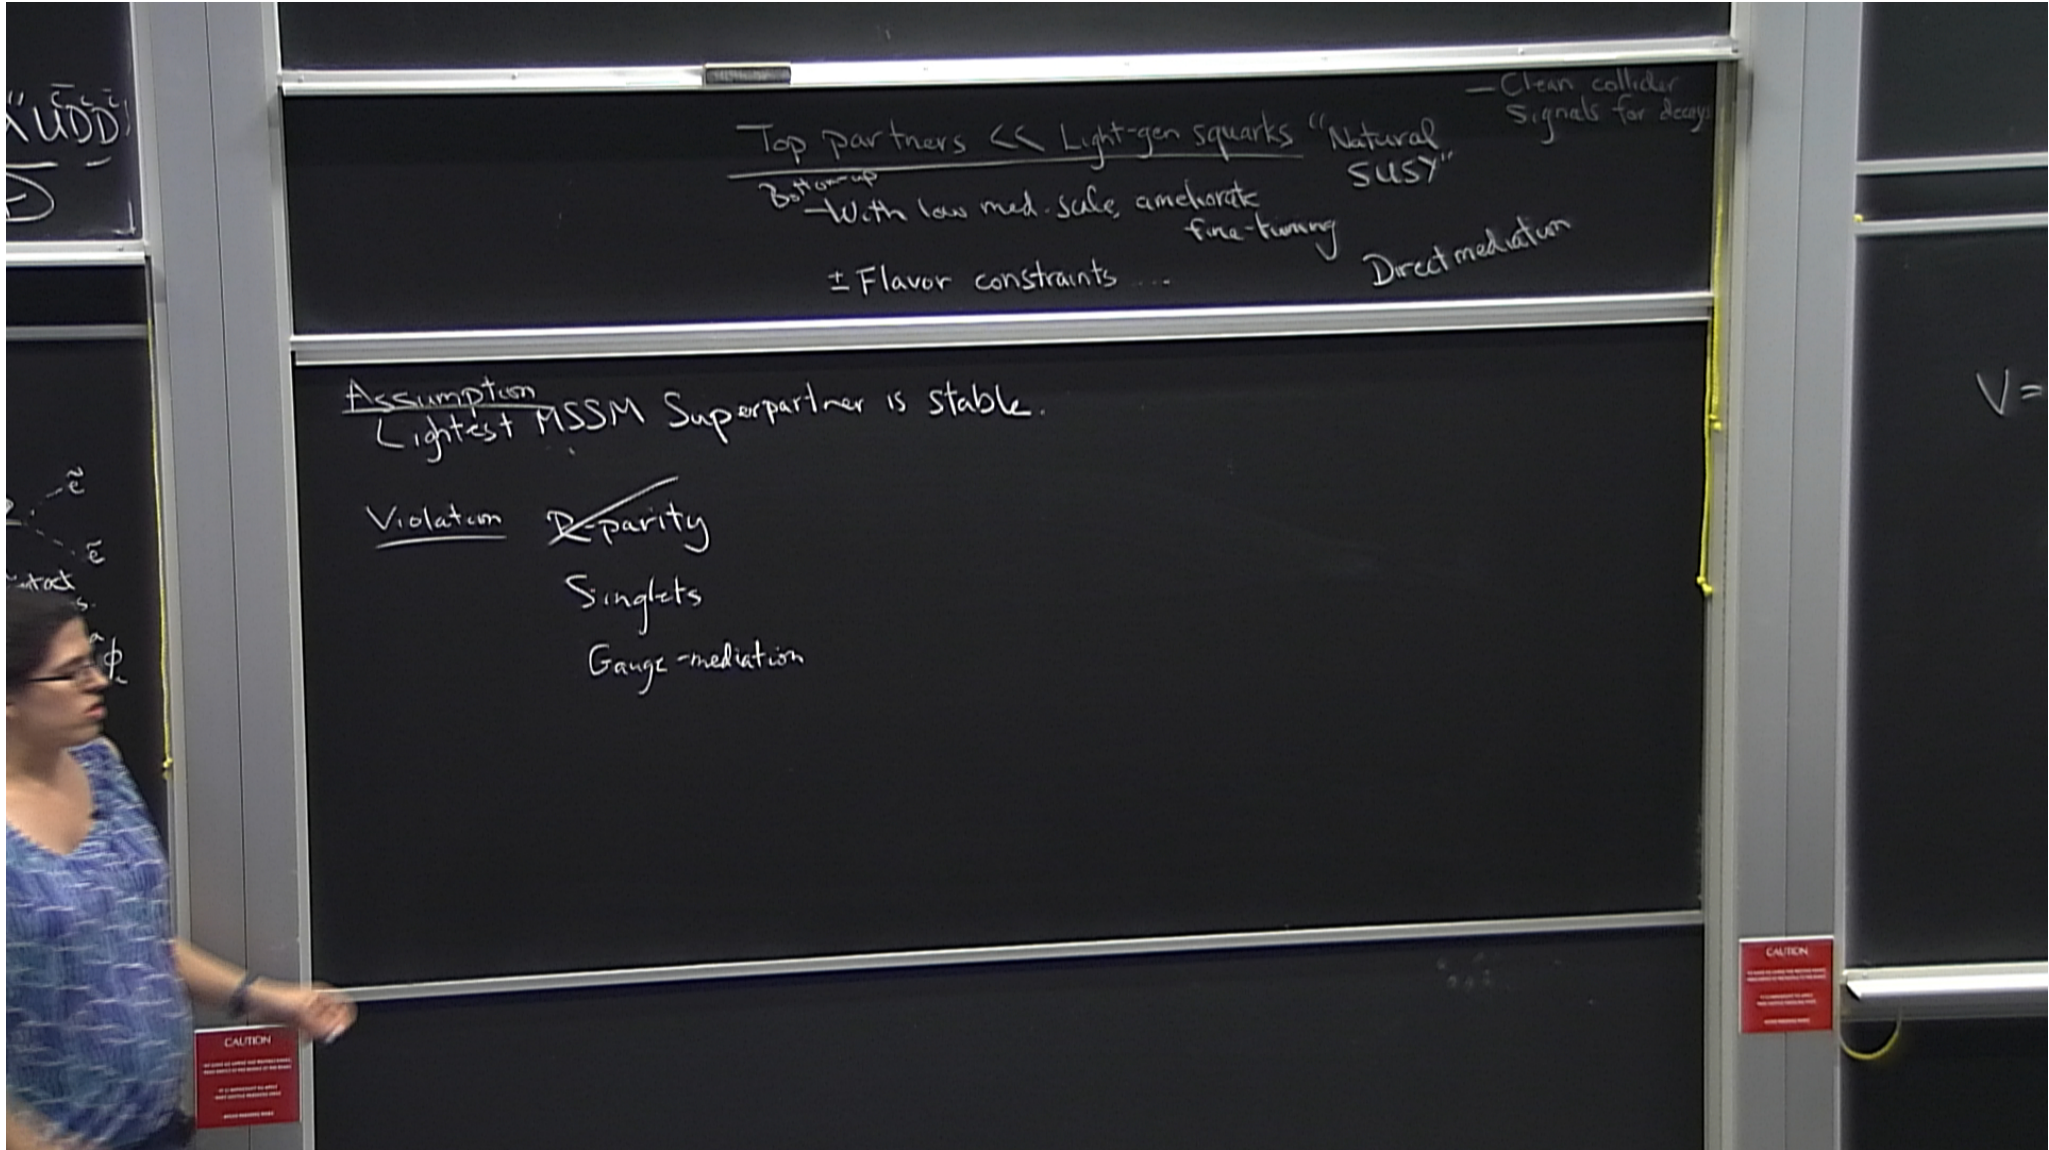 UDD
ẽ
ẽ
s.
ϕ
— Clean collider
signals for decays
Top partners << Light-gen squarks "Natural
SUSY"
Bottom-up
— With low med. scale, ameliorate
fine-tuning
± Flavor constraints ....
Direct mediation
Assumption
Lightest MSSM Superpartner is stable.
Violation R-parity
Singlets
Gauge-mediation
V =
CAUTION
CAUTION